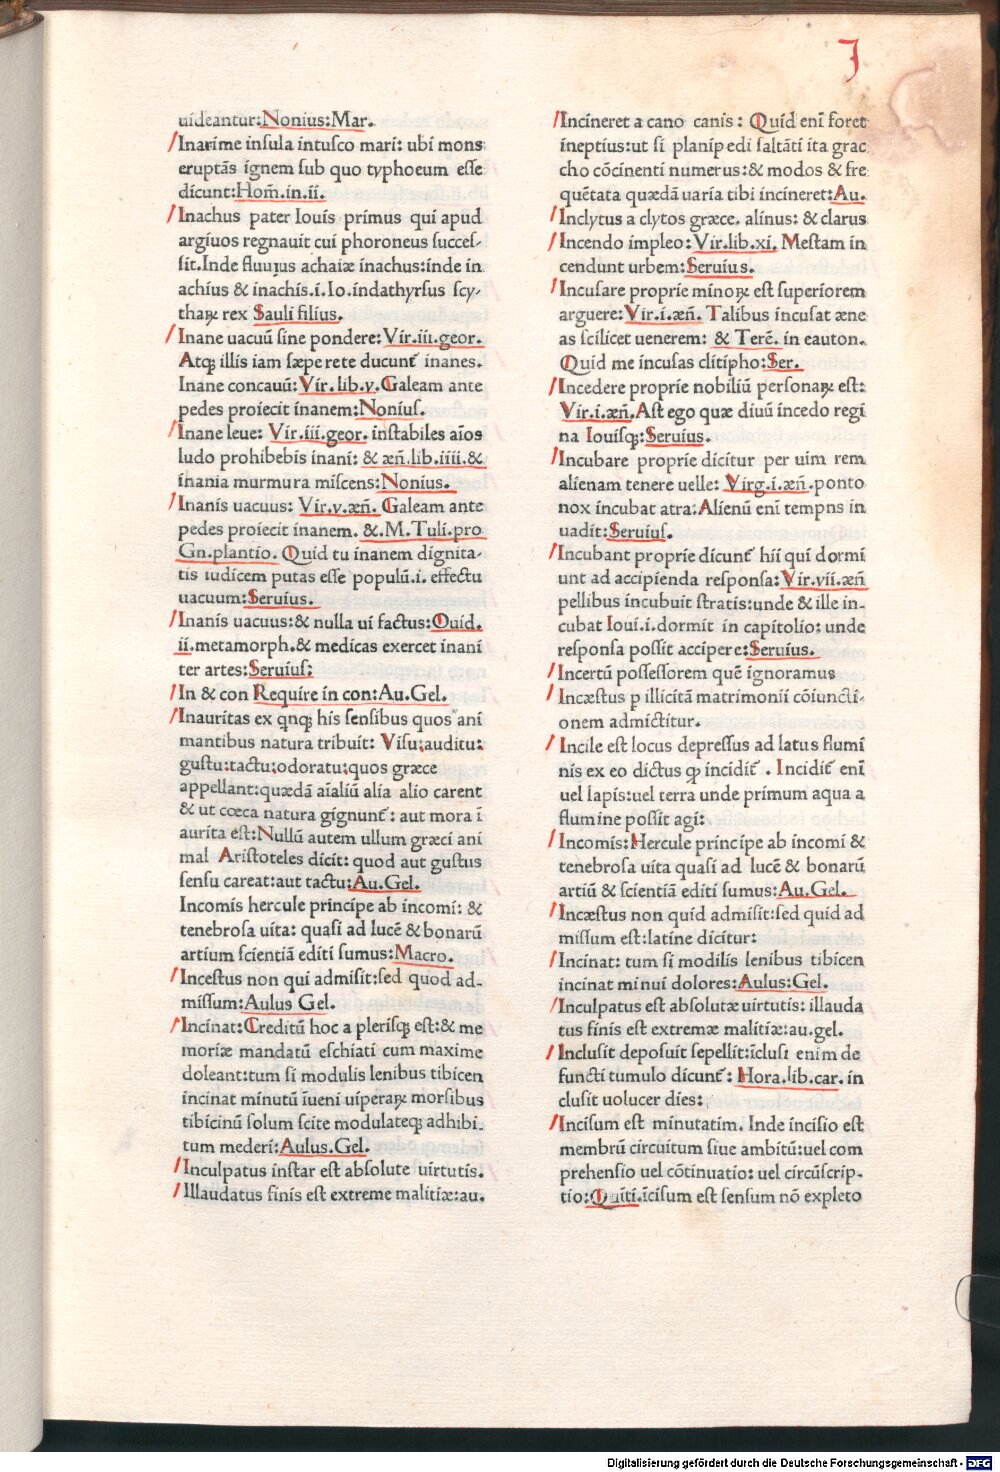 J
uideantur:Nonius:Mar.
Inarime insula intusco mari: ubi mons
eruptãs ignem sub quo typhoeum esse
dicunt:Hom̃.in.ii.
Inachus pater Iouis primus qui apud
argiuos regnauit cui phoroneus succes-
sit.Inde fluuıus achaiæ inachus:inde in
achius & inachis.i.Io.indathyrsus scy-
thaꝝ rex Sauli filius.
Inane uacuũ sine pondere:Vir.iii.geor.
Atqꝫ illis iam sæpe rete ducunt̃ inanes.
Inane concauũ: Vir.lib.v.Galeam ante
pedes proiecit inanem:Nonius.
Inane leue: Vir.iii.geor. instabiles aĩos
ludo prohibebis inani: & æñ.lib.iiii.&
inania murmura miscens:Nonius.
Inanis uacuus: Vir.v.æñ. Galeam ante
pedes proiecit inanem. &.M.Tuli.pro
Gn.plantio. Quid tu inanem dignita-
tis iudicem putas esse populũ.i. effectu
uacuum:Seruius.
Inanis uacuus:& nulla ui factus:Ouid.
ii.metamorph.& medicas exercet inani
ter artes:Seruius:
In & con Require in con:Au.Gel.
Inauritas ex qnqꝫ his sensibus quos ani
mantibus natura tribuit: Visu:auditu:
gustu:tactu:odoratu:quos græce
appellant:quædã aĩaliũ alia alio carent
& ut cœca natura gignunt̃: aut mora ĩ
aurita est:Nullũ autem ullum græci ani
mal Aristoteles dicit: quod aut gustus
sensu careat:aut tactu:Au.Gel.
Incomis hercule principe ab incomi: &
tenebrosa uita: quasi ad lucẽ & bonarũ
artium scientiã editi sumus:Macro.
Incestus non qui admisit:sed quod ad-
missum:Aulus Gel.
Incinat:Creditũ hoc a plerisqꝫ est:& me
moriæ mandatũ eschiati cum maxime
doleant:tum si modulis lenibus tibicen
incinat minutũ iueni uiperaꝝ morsibus
tibicinũ solum scite modulateqꝫ adhibi.
tum mederi:Aulus.Gel.
Inculpatus instar est absolute uirtutis.
Illaudatus finis est extreme malitiæ:au.
Incineret a cano canis: Quid enĩ foret
ineptius:ut si planipedi saltãti ita grac
cho cõcinenti numerus:& modos & fre
quẽtata quædã uaria tibi incineret:Au.
Inclytus a clytos græce. alinus: & clarus
Incendo impleo: Vir.lib.xi. Mestam in
cendunt urbem:Seruius.
Incusare proprie minoꝝ est superiorem
arguere:Vir.i.æñ. Talibus incusat æne
as scilicet uenerem: & Terẽ. in eauton.
Quid me incusas clitipho:Ser.
Incedere proprie nobiliũ personaꝝ est:
Vir.i.æñ.Ast ego quæ diuũ incedo regi
na Iouisqꝫ:Seruius.
Incubare proprie dicitur per uim rem
alienam tenere uelle: Virg.i.æñ.ponto
nox incubat atra:Alienũ enĩ tempns in
uadit:Seruius.
Incubant proprie dicunt̃ hii qui dormi
unt ad accipienda responsa:Vir.vii.æñ
pellibus incubuit stratis:unde & ille in-
cubat Ioui.i.dormit in capitolio: unde
responsa possit accipere:Seruius.
Incertũ possessorem quẽ ignoramus
Incæstus p illicitã matrimonii cõiuncti-
onem admictitur.
Incile est locus depressus ad latus flumi
nis ex eo dictus ꝙ incidit̃ . Incidit̃ enĩ
uel lapis:uel terra unde primum aqua a
flumine possit agi:
Incomis:Hercule principe ab incomi &
tenebrosa uita quasi ad lucẽ & bonarũ
artiũ & scientiã editi sumus:Au.Gel.
Incæstus non quid admisit:sed quid ad
missum est:latine dicitur:
Incinat: tum si modilis lenibus tibicen
incinat minui dolores:Aulus:Gel.
Inculpatus est absolutæ uirtutis: illauda
tus finis est extremæ malitiæ:au.gel.
Inclusit deposuit sepellit:ĩclusi enim de
functi tumulo dicunt̃: Hora.lib.car. in
clusit uolucer dies:
Incisum est minutatim. Inde incisio est
membrũ circuitum siue ambitũ:uel com
prehensio uel cõtinuatio: uel circũscrip-
tio:Quĩti.ĩcisum est sensum nõ expleto
Digitalisierung gefördert durch die Deutsche Forschungsgemeinschaft - DFG